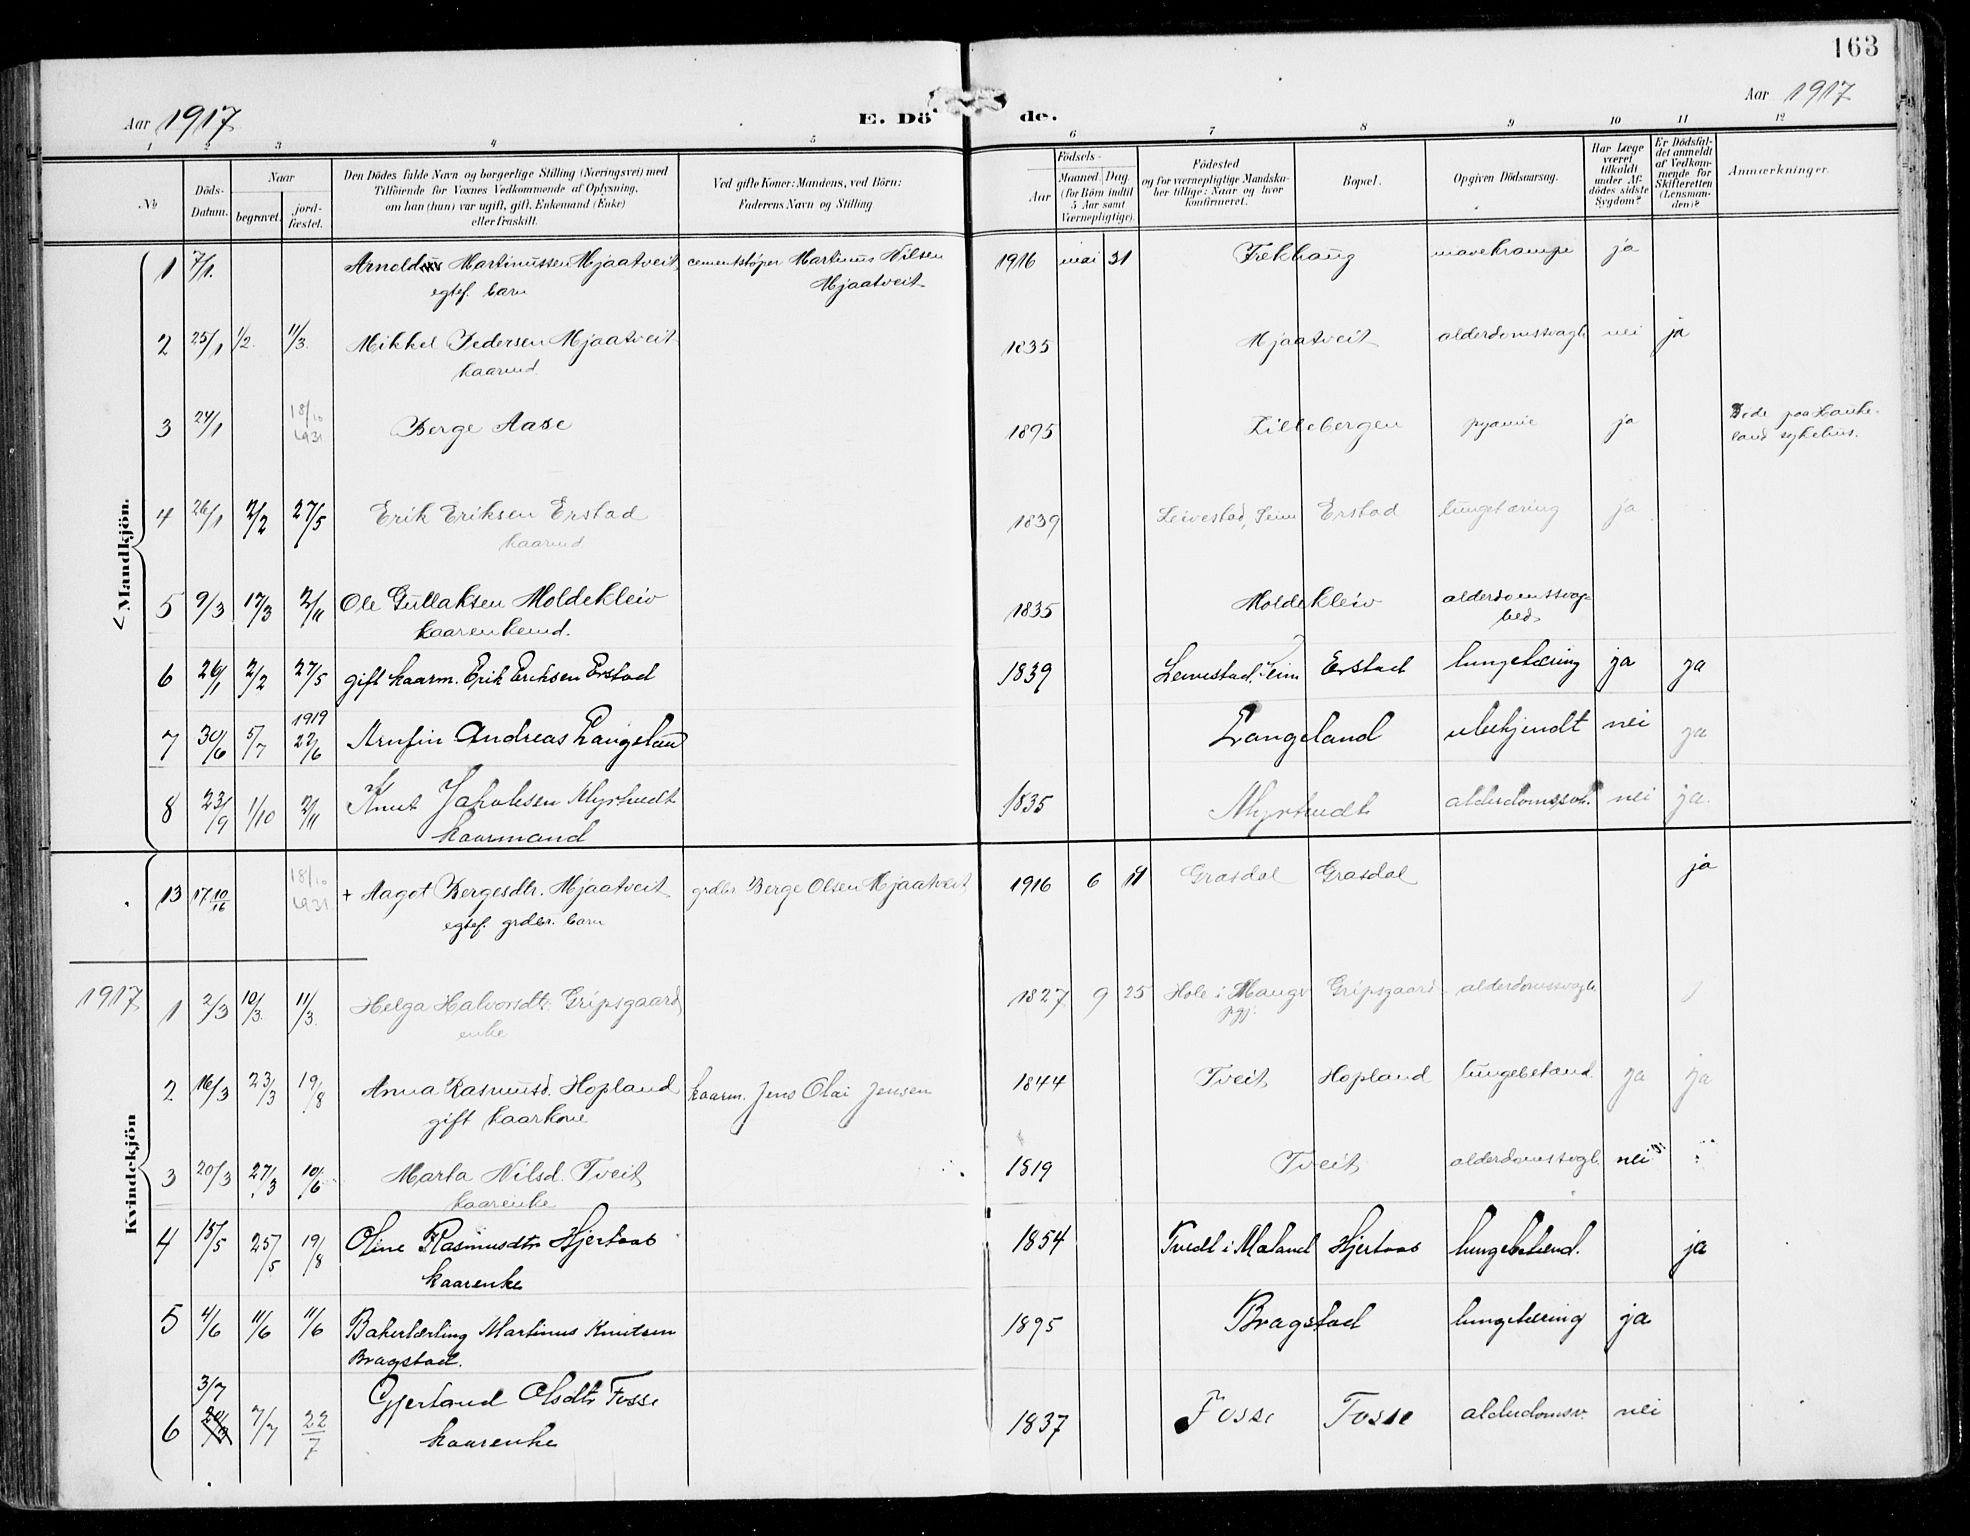 163
Aar 1917 E. Dö de. Aar 1917
1 2 3 4 5 6 7 8 9 10 11 12
№
Döds-Datum.
Naar
begravet.
jord-fæstet.
Den Dödes fulde Navn og borgerlige Stilling (Næringsvei) med
Tilföiende for Voxnes Vedkommende af Oplysning,
om han (hun) var ugift, gift, Enkemand (Enke)
eller fraskilt.
Ved gifte Koner: Mandens, ved Börn:
Faderens Navn og Stilling
Födsels-
Aar
Maaned. Dag.
(for Börn indtil
5 Aar samt
Værnepligtige).
Födested
og for værnepligtige Mandska-
ber tillige: Naar og hvor
konfirmeret.
Bopæl.
Opgiven Dödsaarsag.
Har Læge
været
tilkaldt
under Af-
dödes sidste
Sygdom?
Er Dödsfal-
det anmeldt
af Vedkom-
mende for
Skifteretten
(Lensman-
den)?
Anmærkninger.
< Mandkjön.
1 7/1. Arnoldus Martinussen Mjaatveit cementstøper Martinus Nilsen 1916 mai 31 Frekhaug mavekrampe ja
egtef. barn Mjaatveit
2 25/1 1/2. 11/3. Mikkel Pedersen Mjaatveit 1835 Mjaatveit alderdomssvagh. nei ja
kaarmd.
3 24/1 18/10 1931 Berge Aase 1895 Lillebergen pyæmie ja Døde paa Hauke-
land sykehus.
4 26/1 2/2 27/5 Erik Eriksen Erstad 1839 Leivestad, Seim Erstad lungetæring ja
kaarmd.
5 9/3 17/3 2/11 Ole Gullaksen Moldekleiv 1835 Moldekleiv alderdomssvag-
kaarenkemd. hed.
6 26/1 2/2 27/5 gift kaarm. Erik Eriksen Erstad 1839 Leivestad, Seim Erstad lungetæring ja ja
7 30/6 5/7 1919 22/6 Arnfin Andreas Langeland Langeland ubekjendt nei ja
8 23/9 1/10 2/11 Knut Jakobsen Myrtvedt 1835 Myrtvedt alderdomssv. nei ja.
kaarmand
13 17 10/16 18/10 1931 + Aagot Bergesdtr. Mjaatveit grdbr. Berge Olsen Mjaatveit 1916 6 19 Grasdal Grasdal ja
egtef. grdbr. barn
Kvindekjön
1917
1 2/3 10/3. 11/3. Helga Halvorsdtr. Gripsgaard 1827 9 25 Hole i Mangr Gripsgaard alderdomssvagh.
enke pgj.
2 16/3 23/3 19/8 Anna Rasmusd. Hopland kaarm. Jens Olai Jensen 1844 Tveit Hopland lungebetænd. ja ja
gift kaarkone
3 20/3 27/3 10/6 Marta Nilsd. Tveit 1819 Tveit alderdomssvagh. nei
kaarenke
4 15/5 25/5 19/8 Oline Rasmusdtr Hjertaas 1854 Tvedt i Maland Hjertaas lungebetænd. ja
kaarenke
5 4/6 11/6 11/6 Bakerlærling Martinus Knutsen 1895 Bragstad lungetæring ja
Bragstad.
3/7
6 7/7 22/7 Gjertrud Olsdtr Fosse 1837 Fosse Fosse alderdomsv. nei
kaarenke